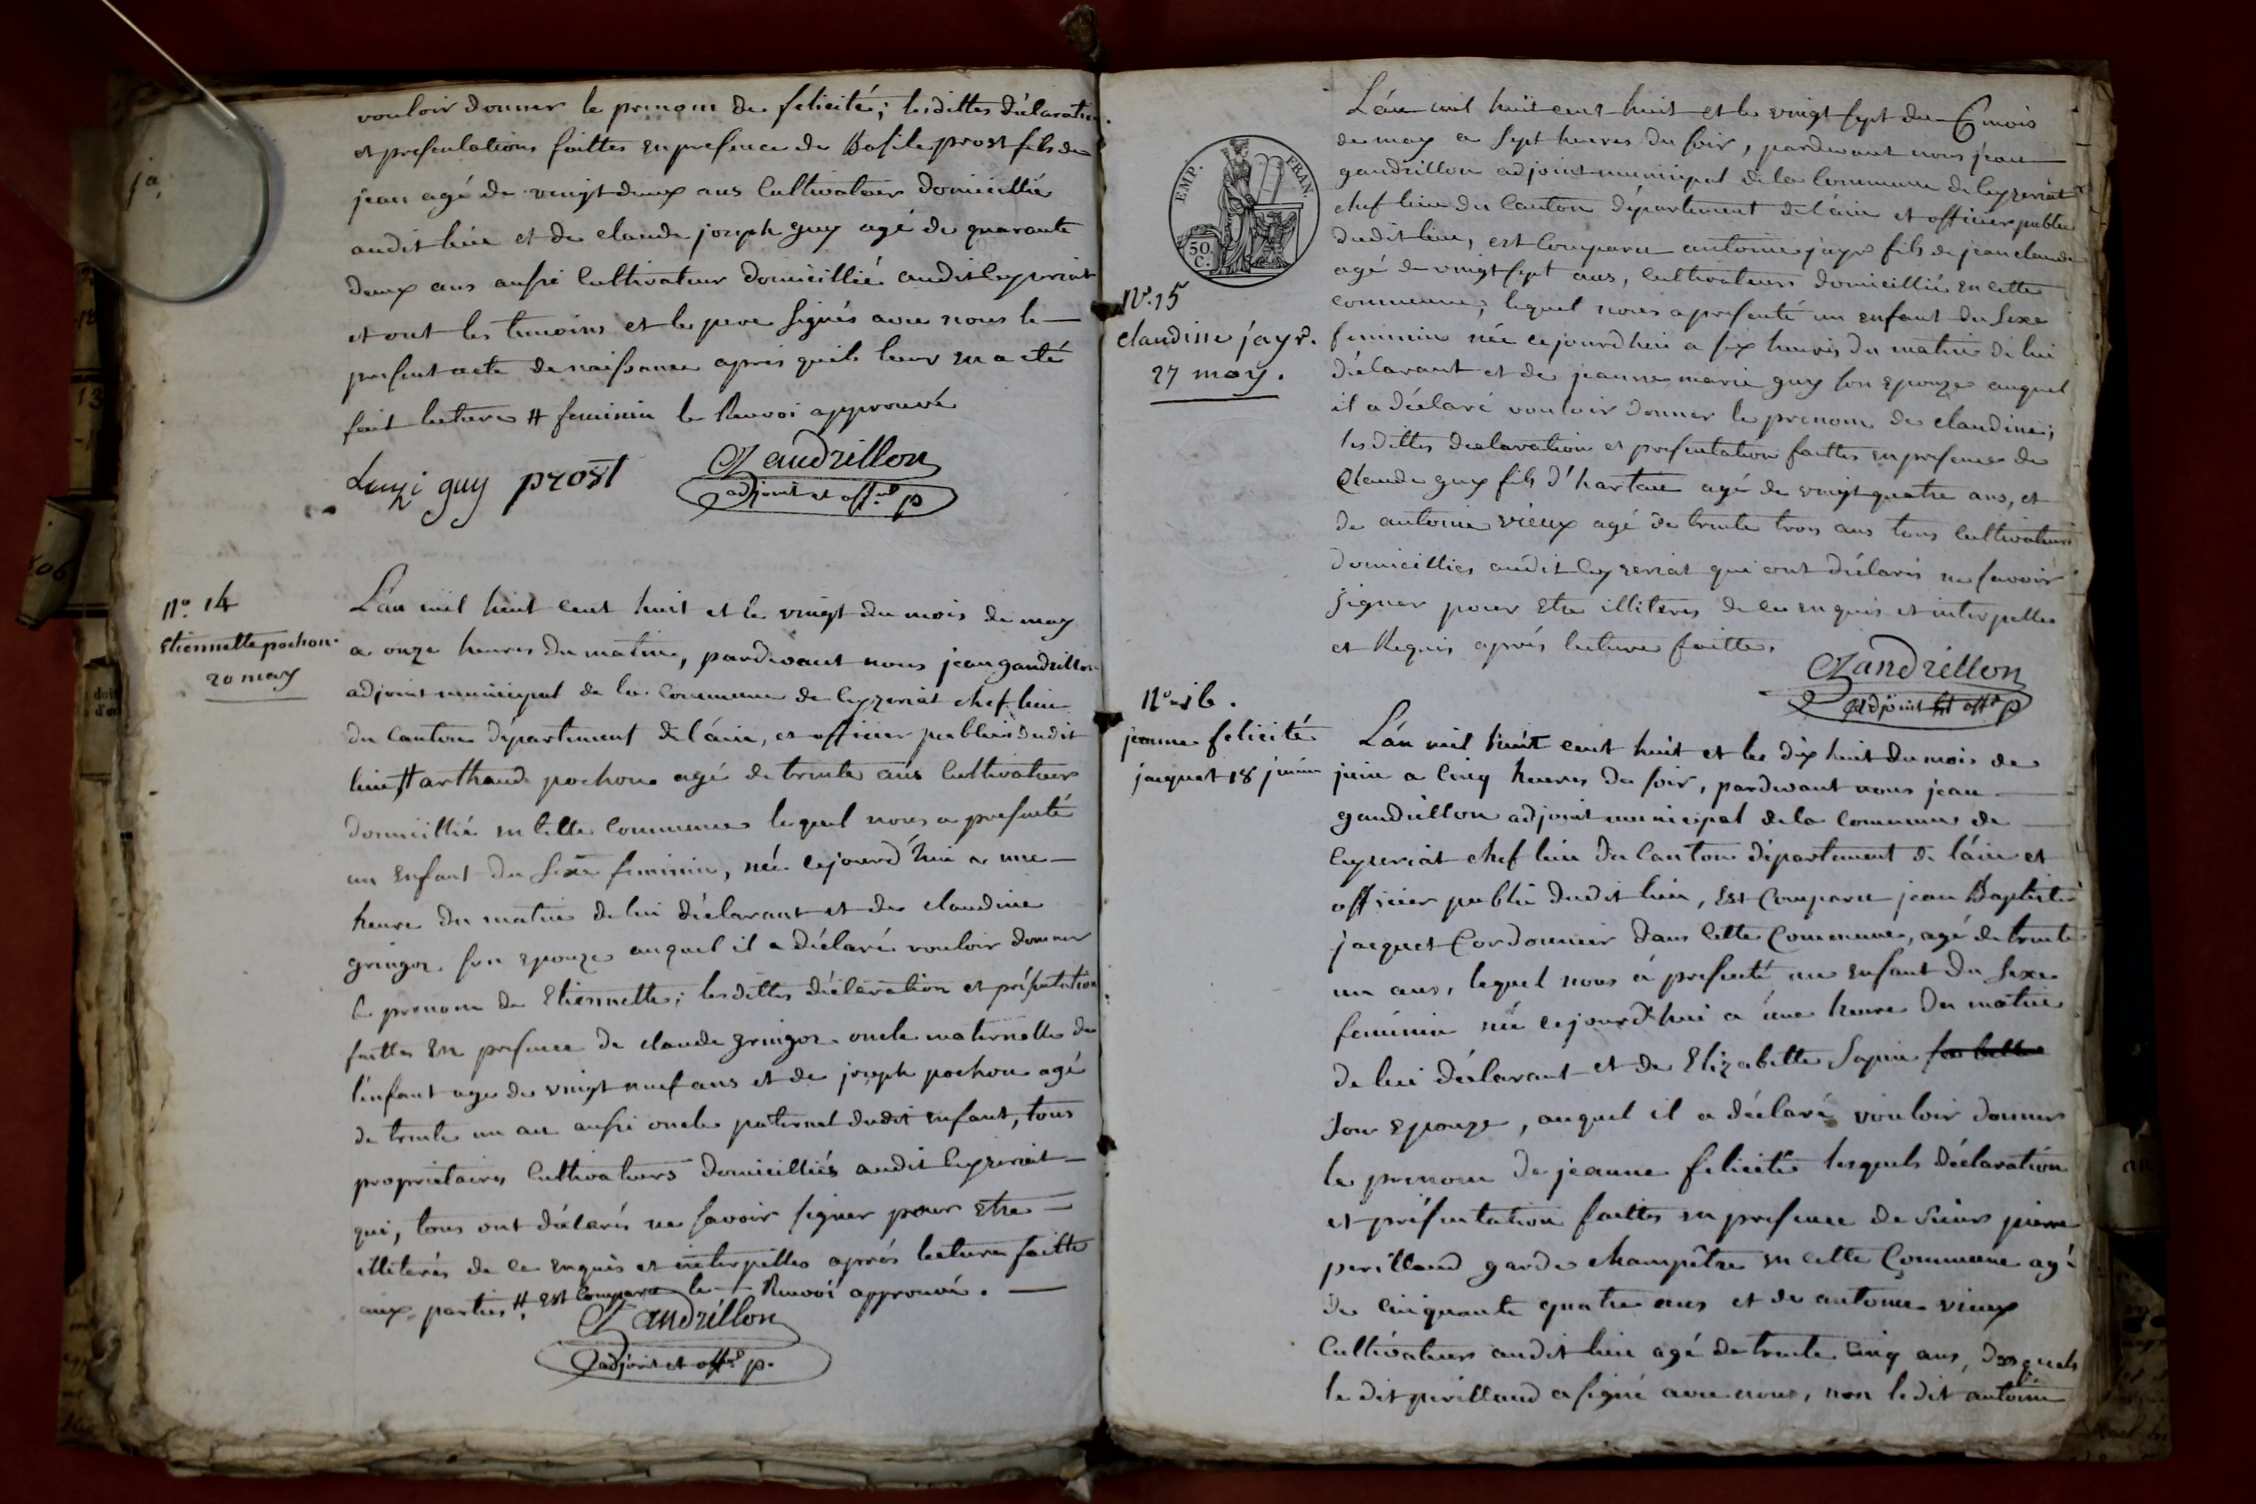 vouloir donner le prenom de felicité; lesdittes déclaration
et presentations faittes en presence de Basile prost fils de
jean agé de vingt deux ans Cultivateur domicillié
audit lieu et de claude joseph guy agé de quarante
deux ans aussi Cultivateur domicillié audit Ceyzeriat
et ont les temoins et le pere signés avec nous le
present acte de naissance apres qu'ils leur en a eté
fait lecture # feminin le Renvoi approuvé
guy prost Gandrillon
adjoint et off. p
N° 14
Etiennette pochon
20 may
L'an mil huit cent huit et le vingt du mois de may
a onze heures du matin, pardevant nous jean gandrillon
adjoint municipal de la commune de Ceyzeriat chef lieu
du Canton département de l'ain, et officier publics dudit
lieu # arthaud pochon agé de trente ans Cultivateur
domicillié en cette Commune lequel nous a presenté
un Enfant du sexe feminin, née cejourd'hui a une
heure du matin de lui déclarant et de claudine
gringoz son epouze auquel il a déclaré vouloir donner
le prenom de Etiennette; lesdittes déclaration et présentation
faittes en presence de claude gringoz oncle maternelle de
l'enfant agé de vingt neuf ans et de joseph pochon agé
de trente un an aussi oncle paternel dudit enfant, tous
proprietaires Cultivateurs domicilliés audit Ceyzeriat
qui, tous ont déclarés ne savoir signer pour Etre
illiterés de ce enquis et interpellés aprés lecture faitte
aux parties # Est Comparu le Renvoi approuvé.
Gandrillon
adjoint et off. p.
L'án mil huit cent huit et le vingt sept du mois
de may a sept heures du soir, pardevant nous jean
gandrillon adjoint municipal de la Commune de Ceyzeriat
chef lieu du Canton département de l'ain et officier public
dudit lieu, est Comparu antoine jayr fils de jean claude
agé de vingt sept ans, Cultivateurs domicillié en cette
EMP. FRAN.
50 C.
N°. 15
claudine jayr.
27 may.
commune, lequel nous a presenté un enfant du sexe
feminin née cejourdhui a six heures du matin de lui
déclarant et de jeanne marie guy son epouze auquel
il a déclaré vouloir donner le prenom de claudine;
lesdittes declaration et presentation faittes en presence de
Claude guy fils d'hartau agé de vingt quatre ans, et
de antoine vieux agé de trente trois ans tous Cultivateurs
domicilliés audit Ceyzeriat qui ont déclarés ne savoir
signer pour etre illiterés de ce enquis et interpellés
et Requis aprés lecture faitte.
Gandrillon
adjoint et off. p
N° 16.
jeanne felicité
jacquet 18 juin
L'án mil huit cent huit et le dix huit du mois de
juin a Cinq heures du soir, pardevant nous jean
gandrillon adjoint municipal de la Commune de
Ceyzeriat chef lieu du Canton département de l'ain et
officier public dudit lieu, Est Comparu jean Baptiste
jacquet Cordonnier dans Cette Commune, agé de trente
un ans, lequel nous á presenté un enfant du sexe
feminin née cejourd'hui a une heure du matin
de lui déclarant et de Elizabette Sapin
son epouze, auquel il a déclaré vouloir donner
le prenom de jeanne felicité lesquels déclaration
et présentation faittes en presence de sieurs pierre
perilland garde champêtre en cette Commune agé
de Cinquante quatre ans et de antoine vieux
Cultivateurs audit lieu agé de trente Cinq ans, Desquels
le dit perilland a signé avec nous, non le dit antoine